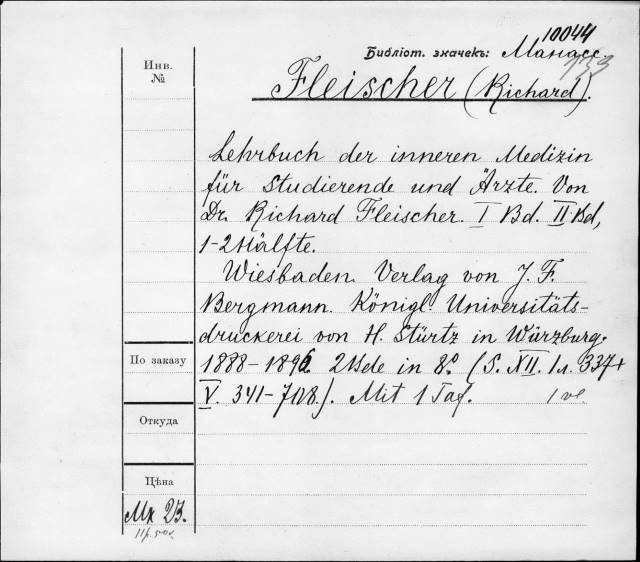 10044
Библіот. значекъ: Манасс.
733
Fleischer (Richard).
Инв.
№
Lehrbuch der inneren Medizin
für Studierende und Ärzte. Von
Dr. Richard Fleischer. I Bd. II Bd,
1-2 Hälfte.
Wiesbaden. Verlag von J. F.
Bergmann. Königl. Universitäts-
druckerei von H. Stürtz in Würzburg.
1888-1896. 2 Bde in 8°. (S. XII. 1л. 337+
V. 341-708.). Mit 1 Taf.
По заказу
Откуда
Цѣна
Mk 23.